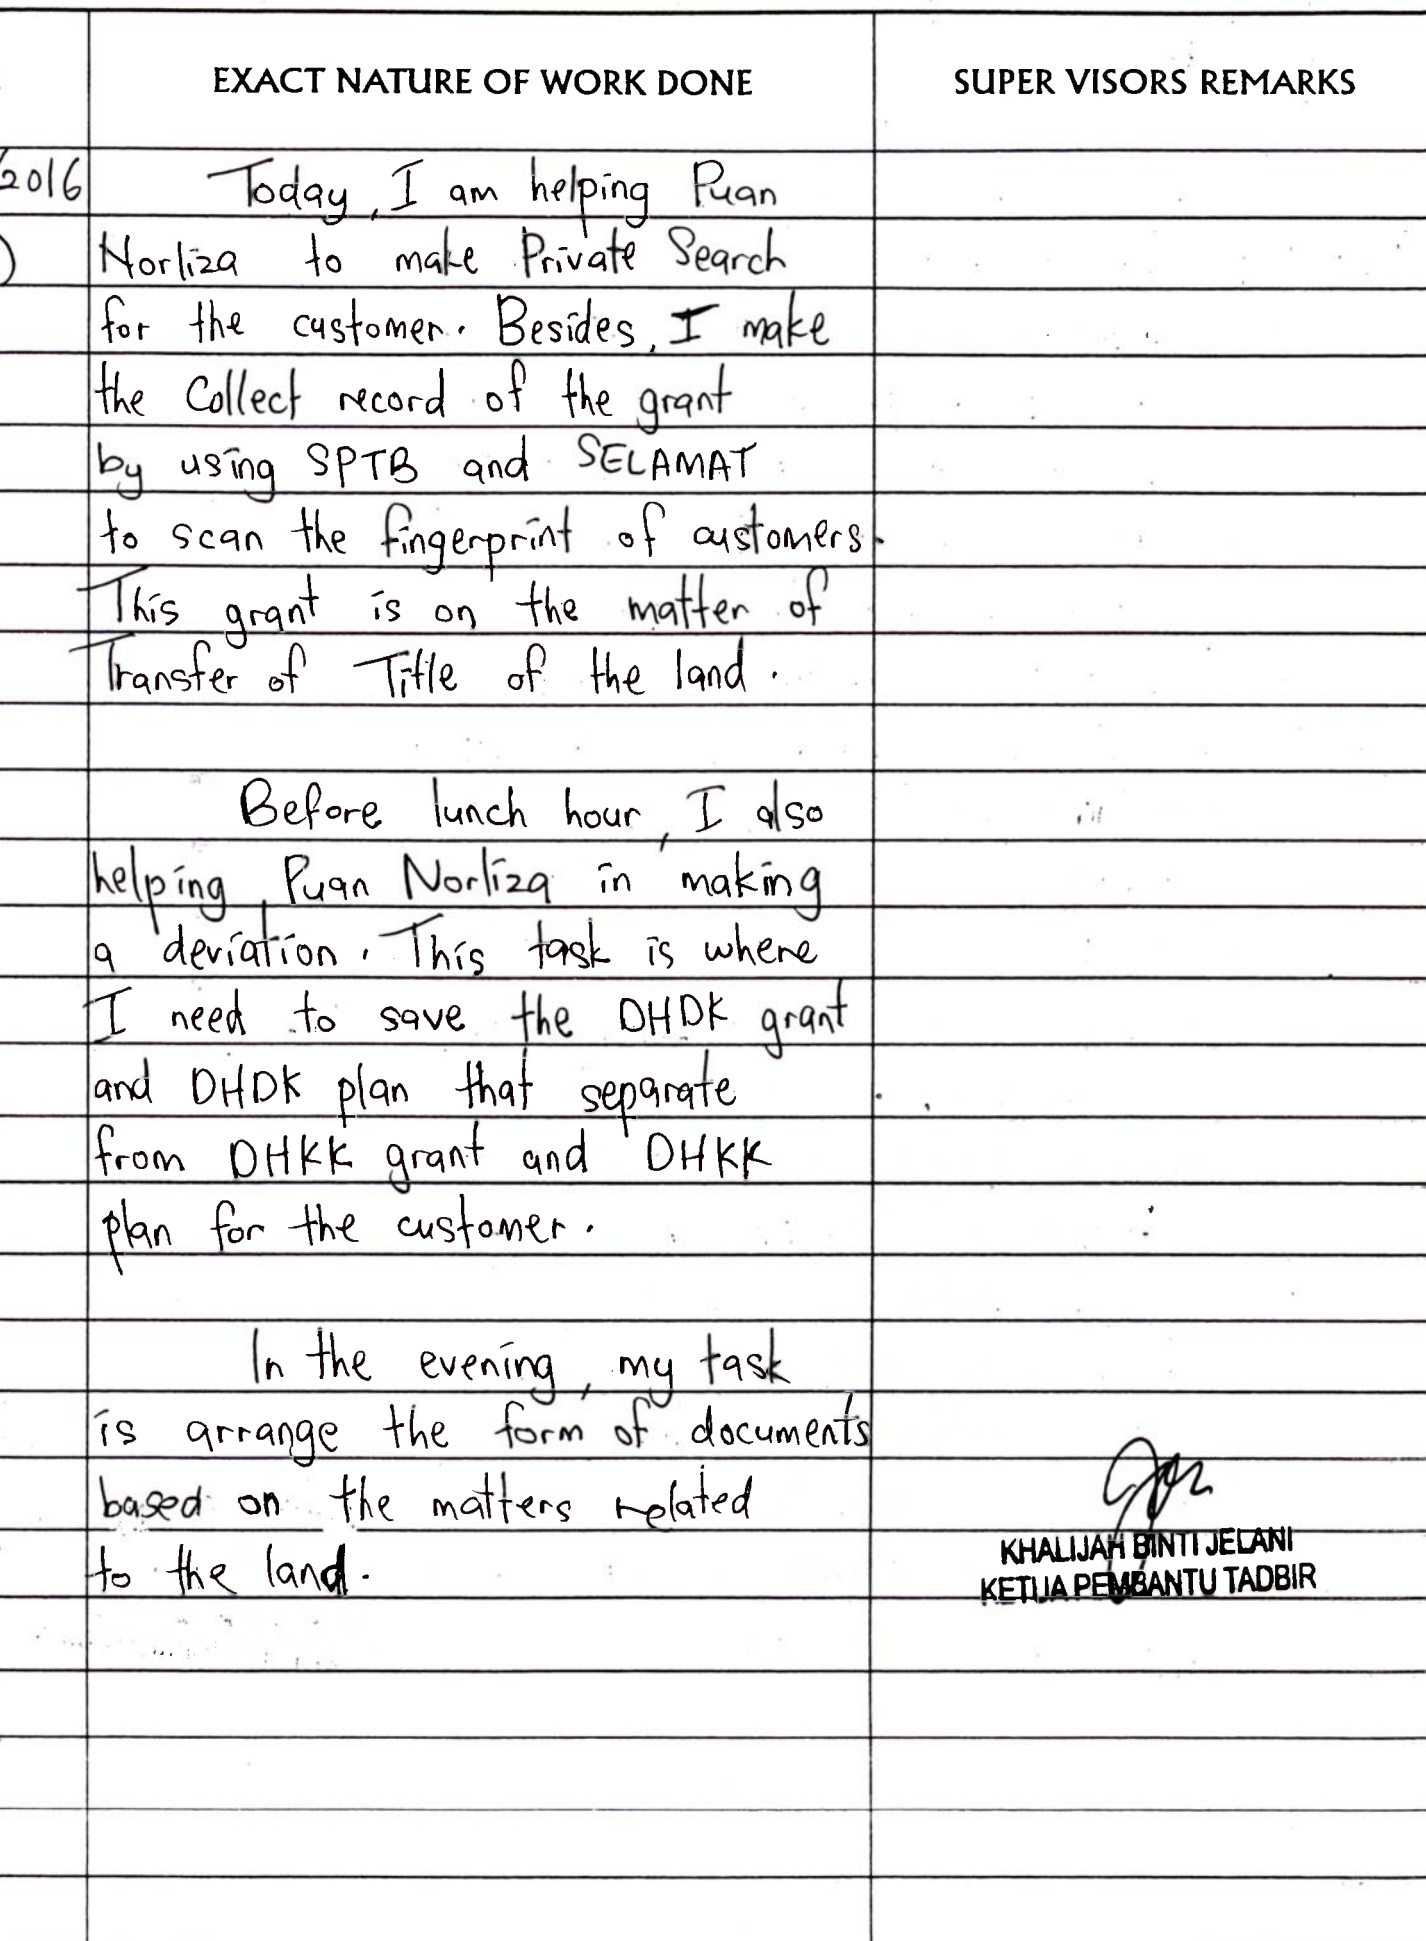 EXACT NATURE OF WORK DONE
SUPER VISORS REMARKS
/2016
)
Today, I am helping Puan
Norliza to make Private Search
for the customer. Besides, I make
the Collect record of the grant
by using SPTB and SELAMAT
to scan the fingerprint of customers.
This grant is on the matter of
Transfer of Title of the land.
Before lunch hour, I also
helping, Puan Norliza in making
a deviation. This task is where
I need to save the DHDK grant
and DHDK plan that separate
from DHKK grant and DHKK
plan for the customer.
In the evening, my task
is arrange the form of documents
based on the matters related
to the land.
KHALIJAH BINTI JELANI
KETUA PEMBANTU TADBIR